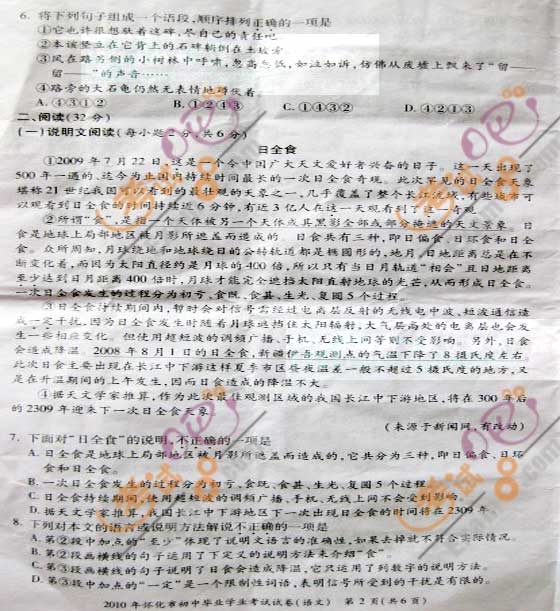 6. 将下列句子组成一个语段,顺序排列正确的一项是
①它也许很想驮着这碑,尽自己的责任吧
②本该竖立在它背上的石碑躺倒在土坡旁
③风在路另侧的小树林中呼啸,忽高忽低,如泣如诉,仿佛从废墟上飘来了“留——
留——”的声音……
④路旁的大石龟仍然无表情地蹲伏着
A. ④③①② B. ①②④③ C. ①④③② D. ④②①③
二、阅读(32分)
(一)说明文阅读(每小题2分,共6分)
日全食
①2009年7月22日,这是一个令中国广大天文爱好者兴奋的日子。这一天出现了
500年一遇的、迄今为止国内持续时间最长的一次日全食奇观。此次罕见的日全食天象
堪称21世纪我国可以看到的最壮观的天象之一,几乎覆盖了整个长江流域,有些城市可
以观看到日全食的时间持续近6分钟,有近3亿人在这一天观看到了这一奇观。
②所谓“食”,是指一个天体被另一个天体或其黑影全部或部分掩遮的天文景象。日
食是地球上局部地区被月影所遮盖而造成的。日食共有三种,即日偏食、日环食和日全
食。众所周知,月球绕地和地球绕日的公转轨道都是椭圆形的,地月、日地距离总是在不
断变化着,而因为太阳直径约是月球的400倍,所以只有当日月轨道“相会”且日地距离
至少达到日月距离400倍时,月球才能完全遮挡太阳直射地球的光芒,从而形成日全食。
一次日全食发生的过程分为初亏、食既、食甚、生光、复圆5个过程。
③日全食持续期间内,暂时会对信号需经过电离层反射的无线电中波、短波通信造
成一定干扰,因为日全食发生时随着月球遮挡住太阳辐射,大气层高处的电离层也会发
生一些相应变化。但使用超短波的调频广播、手机、无线上网等则不受影响。另外,日食
会造成降温。2008年8月1日的日全食,新疆伊吾观测点的气温下降了8摄氏度左右。
此次日食主要出现在长江中下游这样夏季市区昼夜温差一般不超过5摄氏度的地方,又
是在升温期间的上午发生,因而日食造成的降温不大。
④据天文学家推算,作为此次最佳观测区域的我国长江中下游地区,将在300年后
的2309年迎来下一次日全食天象。
(来源于新闻网,有改动)
7. 下面对“日全食”的说明,不正确的一项是
A. 日全食是地球上局部地区被月影所遮盖而造成的,它共分为三种,即日偏食、日环
食和日全食。
B. 一次日全食发生的过程分为初亏、食既、食甚、生光、复圆5个过程
C. 日全食持续期间,使用超短波的调频广播、手机、无线上网不会受到影响。
D. 据天文学家推算,我国长江中下游地区下一次出现日全食的时间将在2309年
8. 下列对本文的语言或说明方法解说不正确的一项是
A. 第②段中加点的“至少”体现了说明文语言的准确性,如果去掉就不符合实际情况。
B. 第②段画横线的句子运用了下定义的说明方法来介绍“食”。
C. 第③段画横线的句子说明了日食会造成降温,它只运用了列数字的说明方法。
D. 第③段中加点的“一定”是一个限制性词语,表明信号所受到的干扰是有限的。
2010年怀化市初中毕业学业考试试卷(语文) 第2页(共6页)